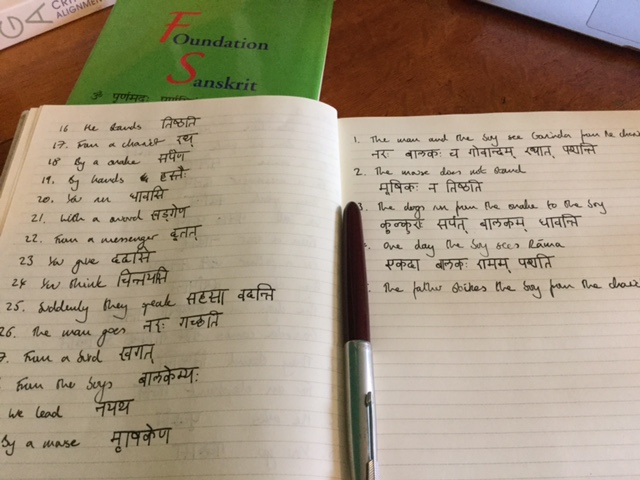 CRI
ALIGNMEN
Foundation
Sanskrit
ॐ पूर्णमदः
16. He stands तिष्ठति
17. From a chariot रथ्
18 By a snake सर्पेण
19. By hands हस्तैः
20. You run धावसि
21. With a sword खड्गेण
22. From a messenger दूतत्
23 You give ददासि
24 You think चिन्तयसि
25. Suddenly they speak सहसा वदन्ति
26. The man goes नरः गच्छति
7. From a bird खगत्
From the boys बालकेभ्यः
We lead नयथ
By a mouse मूषिकेण
1. The man and the boy see Govinda from the
नरः बालकः च गोविन्दम् रथात् पश्यन्ति
2. The mouse does not stand
मूषिकः न तिष्ठति
3. The dogs run from the snake to the boy
कुक्कुराः सर्पत् बालकम् धावन्ति
One day the boy sees Rāma
एकदा बालकः रामम् पश्यति
The father strikes the boy from the